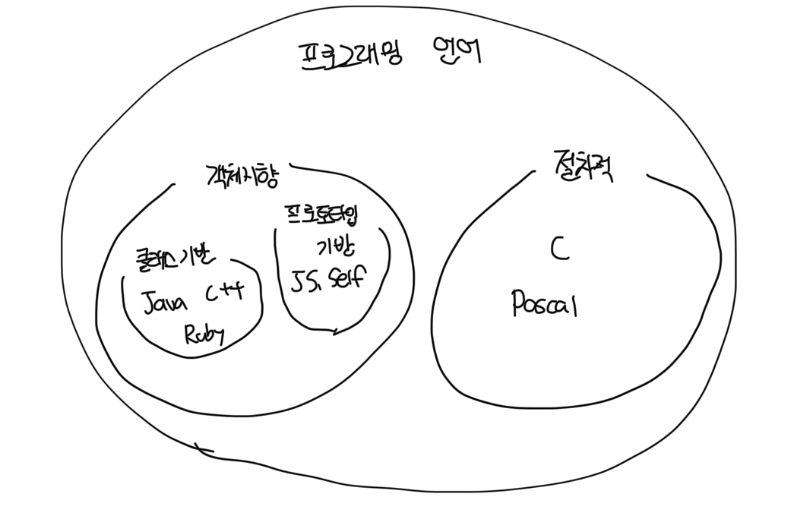 프로그래밍 언어
객체지향
클래스 기반
Java C++
Ruby
프로토타입
기반
JS, Self
절차적
C
Pascal